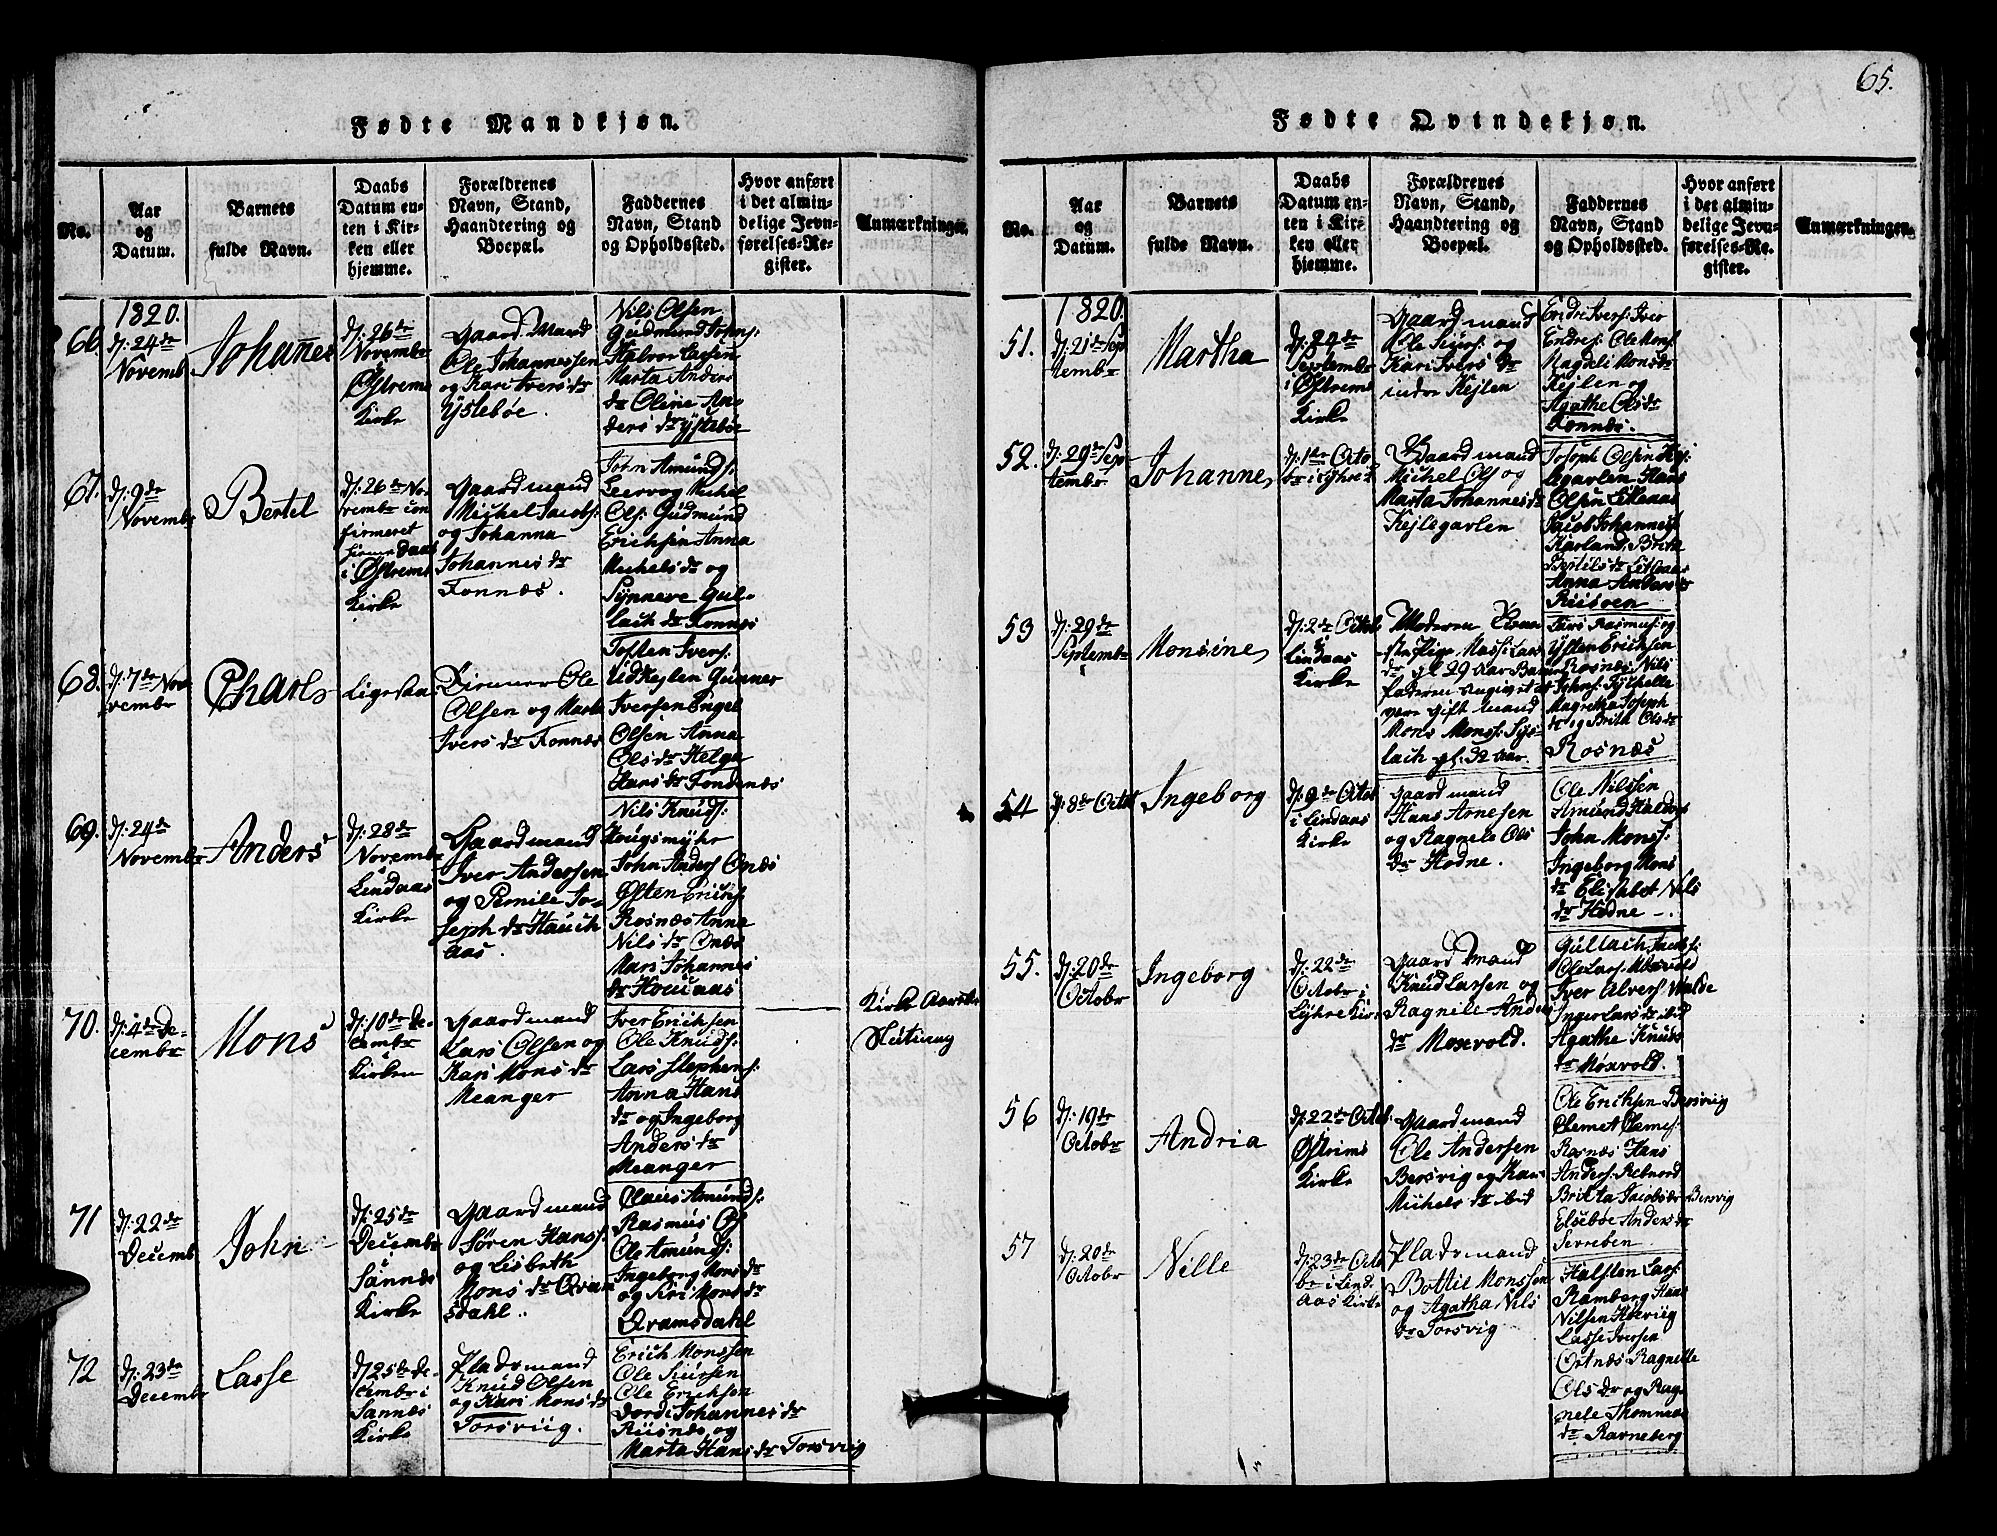 65.
Fødte Mandkjøn.
No.
Aar
og
Datum.
Barnets
fulde Navn.
Daabs
Datum en-
ten i Kir-
ken eller
hjemme.
Forældrenes
Navn, Stand,
Haandtering og
Boepæl.
Faddernes
Navn, Stand
og Opholdssted.
Hvor anført
i det almin-
delige Jevn-
førelses-Re-
gister.
Anmærkninger.
1820.
66.
d: 24de
Novemb
Johannes
d: 26de
Novembr
Østrems
Kirke
Gaard Mand
Ole Johannessen
og Kari Ivers dr
Ystebøe.
Nils Olsen
Gudmund Johns:
Halvor Lassen
Marta Anders
dr Oline An-
ders dr Ystebøe
67.
d: 9de
Novembr
Bertel
d: 26de No-
vembr con
firmeret
hiemedaab
i Østrems
Kirke
Gaardmand
Michel Jacobs:
og Johanna
Johannes dr
Fonnæs.
John Amunds:
Leervog Michel
Ols: Gudmund
Erichsen Anna
Michels dr og
Synneve Gul-
lach dr Fonnæs
68.
d: 7de No-
vembr
Charls
Ligesaa
Ole
Olsen og Marta
Ivers dr Fonnæs
Tosten Ivers:
Udkejlen Gunner
Iversen Engel
Olsen Anna
Ols dr Helga
Hans dr Fondenæs
69.
d: 24de
Novembr
Anders
d: 28de
Novembr
Lindaas
Kirke
Gaardmand
Iver Andersen
og Pernile Jo-
seph dr Hauch
aas.
Nils Knuds:
Hougsmyhr
John Anders: Onæs
Østen Erichs:
Rosnæs Anna
Nils dr Onæs
Mari Johannes
dr Hocaas
70.
d: 4de De-
cembr
Mons
d: 10de De-
cembr
Kirken
Gaardmand
Lars Olsen og
Kari Mons dr
Meanger
Iver Erichsen
Ole Knuds:
Lars Stephens:
Anna Hans
dr og Ingeborg
Anders dr
Meanger
Kirke Aarets
Slutning
71
d: 22de
Decemb
John
d: 25de
Decembr
Sannæs
Kirke
Gaardmand
Søren Hans:
og Lisbeth
Mons dr Qvam
sdahl.
Claus Amunds:
Rasmus Ols
Ole Amunds:
Ingeborg Mons dr
og Siri Mons dr
Qvamsdahl
72
d: 23de
Decembr
Lasse
d 25de De-
cembr i
Sannæs
Kirke
Pladsmand
Knud Olsen
og Kari Mons dr
Torsviig.
Erich Monssen
Ole Siursen
Ole Erichsen
Dordi Johannes dr
Riisnæs og
Marta Hans dr Torsviig
Fødte Qvindekjøn.
No.
Aar
og
Datum.
Barnets
fulde Navn.
Daabs
Datum en-
ten i Kir-
ken eller
hjemme.
Forældrenes
Navn, Stand,
Haandtering og
Boepæl.
Faddernes
Navn, Stand
og Opholdssted.
Hvor anført
i det almin-
delige Jevn-
førelses-Re-
gister.
Anmærkninger.
1820.
51.
d: 21de Sep
tembr
Martha
d: 24de
Septembr
i Østrems
Kirke
Gaardmand
Ole Siurs: og
Kari Ivers dr
indre Kejlen
Endre Ivers: Iver
Endres: Ole Mons:
Magdeli Mons dr
Kejlen og
Agathe Ols dr
Fonnæs.
52.
d: 29de Sep
tembr
Johanne
d: 1de Octo
br i Lyhre K:
Gaardmand
Michel Ols: og
Marta Johannes dr
Kejlegavlen
Joseph Olsen Kej
legavlen Hans
Olsen Litleaas
Jacob Johannes:
Karland, Brita
Bertils dr Litleaas
Anna Anders dr
Riisøen
53
d: 29de
Septembr
Monsine
d: 2de Octob
Lindaas
Kirke
Moderen
Massi Lars
dr gl 29 Aar Barne
faderen angivet at
være gift Mand
Mons Mons:
lach gl: 32 Aar.
Lars Rasmus: og
Østen Erichsen
Rosnæs Nils
Johns:
Magretha Joseph
dr og Brita Ols dr
Rosnæs
54
d: 8de Octob
Ingeborg
d: 9de Octob
i Lindaas
Kirke
Gaardmand
Hans Arnesen
og Ragnele Ols
dr Hodne.
Ole Nilssen
Amund Haldors
John Mons:
Ingeborg Mons
dr Elisabet Nils
dr Hodne.
55.
d: 20de
Octobr
Ingeborg
d: 22de
Octobr i
Lyhre Kirk
Gaardmand
Knud Larsen og
Ragnele Anders
dr Moxvold.
Gullach Jacobs:
Ole Lars: Moxvold
Iver Alvers: Walde
Inger Lars dr ibid
Agathe Knuds
dr Moxvold.
56
d: 19de
Octobr
Andria
d: 22de Octob
Østrems
Kirke
Gaardmand
Ole Andersen
Bersvig og Kari
Michels dr ibid
Ole Erichsen Bersviig
Clemet Clemes:
Rosnæs Hans
Anders: Rebnord
Brikta Jacobs dr Bersvig
Elsebøe Anders dr
Serreben.
57
d: 20de
Octobr
Nille
d: 23de Octo
br i Lind
aas Kirke
Pladsmand
Bottil Monssen
og Agatha Nils
dr Torsvig
Halsten Lars:
Ramberg Hans
Nilsen Høeviig
Lasse Iversen
Ortnæs Ragnille
Ols dr og Rag-
nele Thommæs
dr Ravneberg